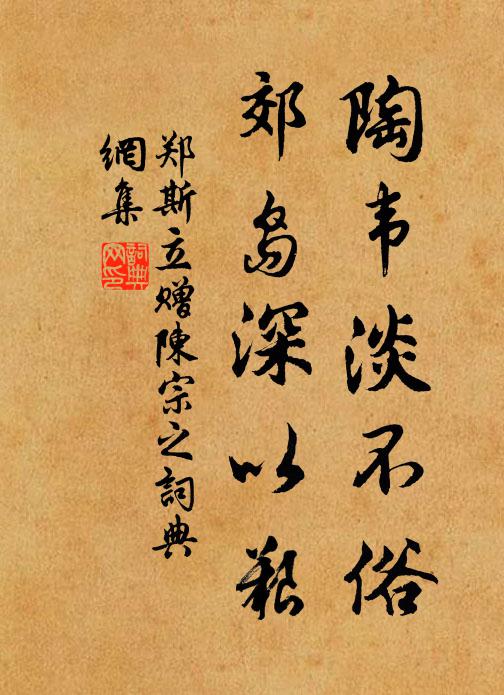 陶韦淡不俗
郊岛深以艰
郑斯立赠陳宗之詞典
網集
詞典
网印